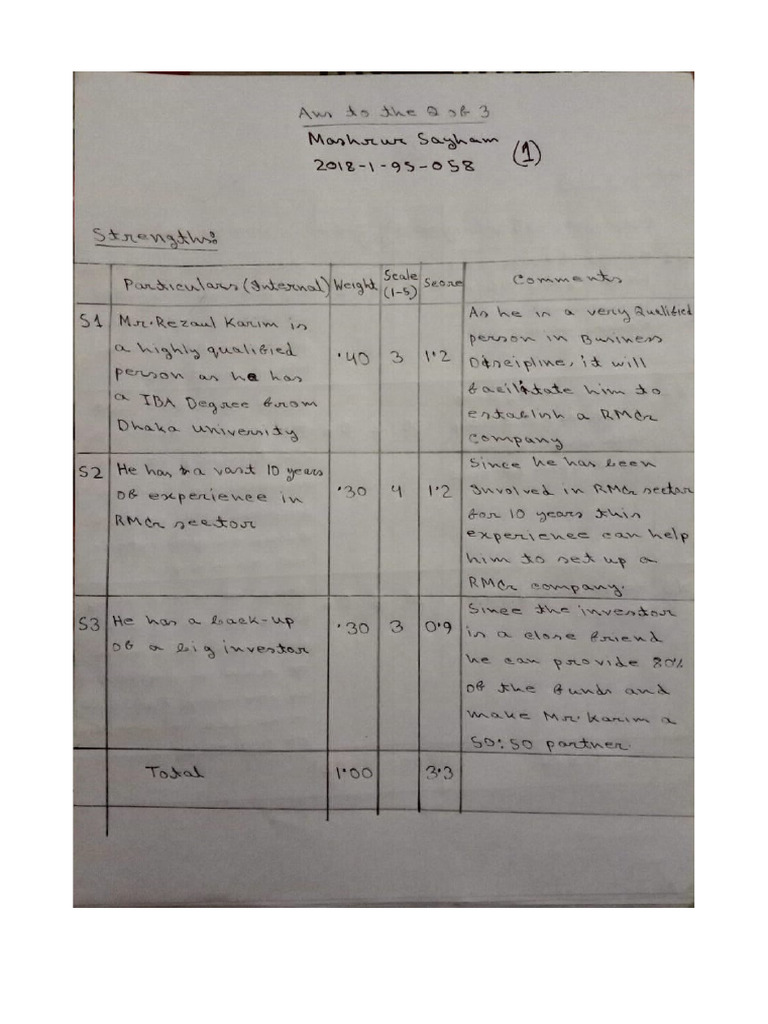 Ans to the Q of 3
Mashrur Sayham
(1)
2018-1-95-058
Strengths:
Particulars (Internal) Weight Scale (1-5) Score Comments
S1 Mr. Rezaul Karim is
a highly qualified
person as he has
a IBA Degree from
Dhaka University
.40 3 1.2
As he is a very Qualified
person in Business
Discipline, it will
facilitate him to
establish a RMG
company
S2 He has a vast 10 years
of experience in
RMG sector
.30 4 1.2
Since he has been
Involved in RMG sector
for 10 years this
experience can help
him to set up a
RMG company.
S3 He has a back-up
of a big investor
.30 3 0.9
Since the investor
is a close friend
he can provide 80%
of the funds and
make Mr. Karim a
50:50 partner.
Total 1.00 3.3